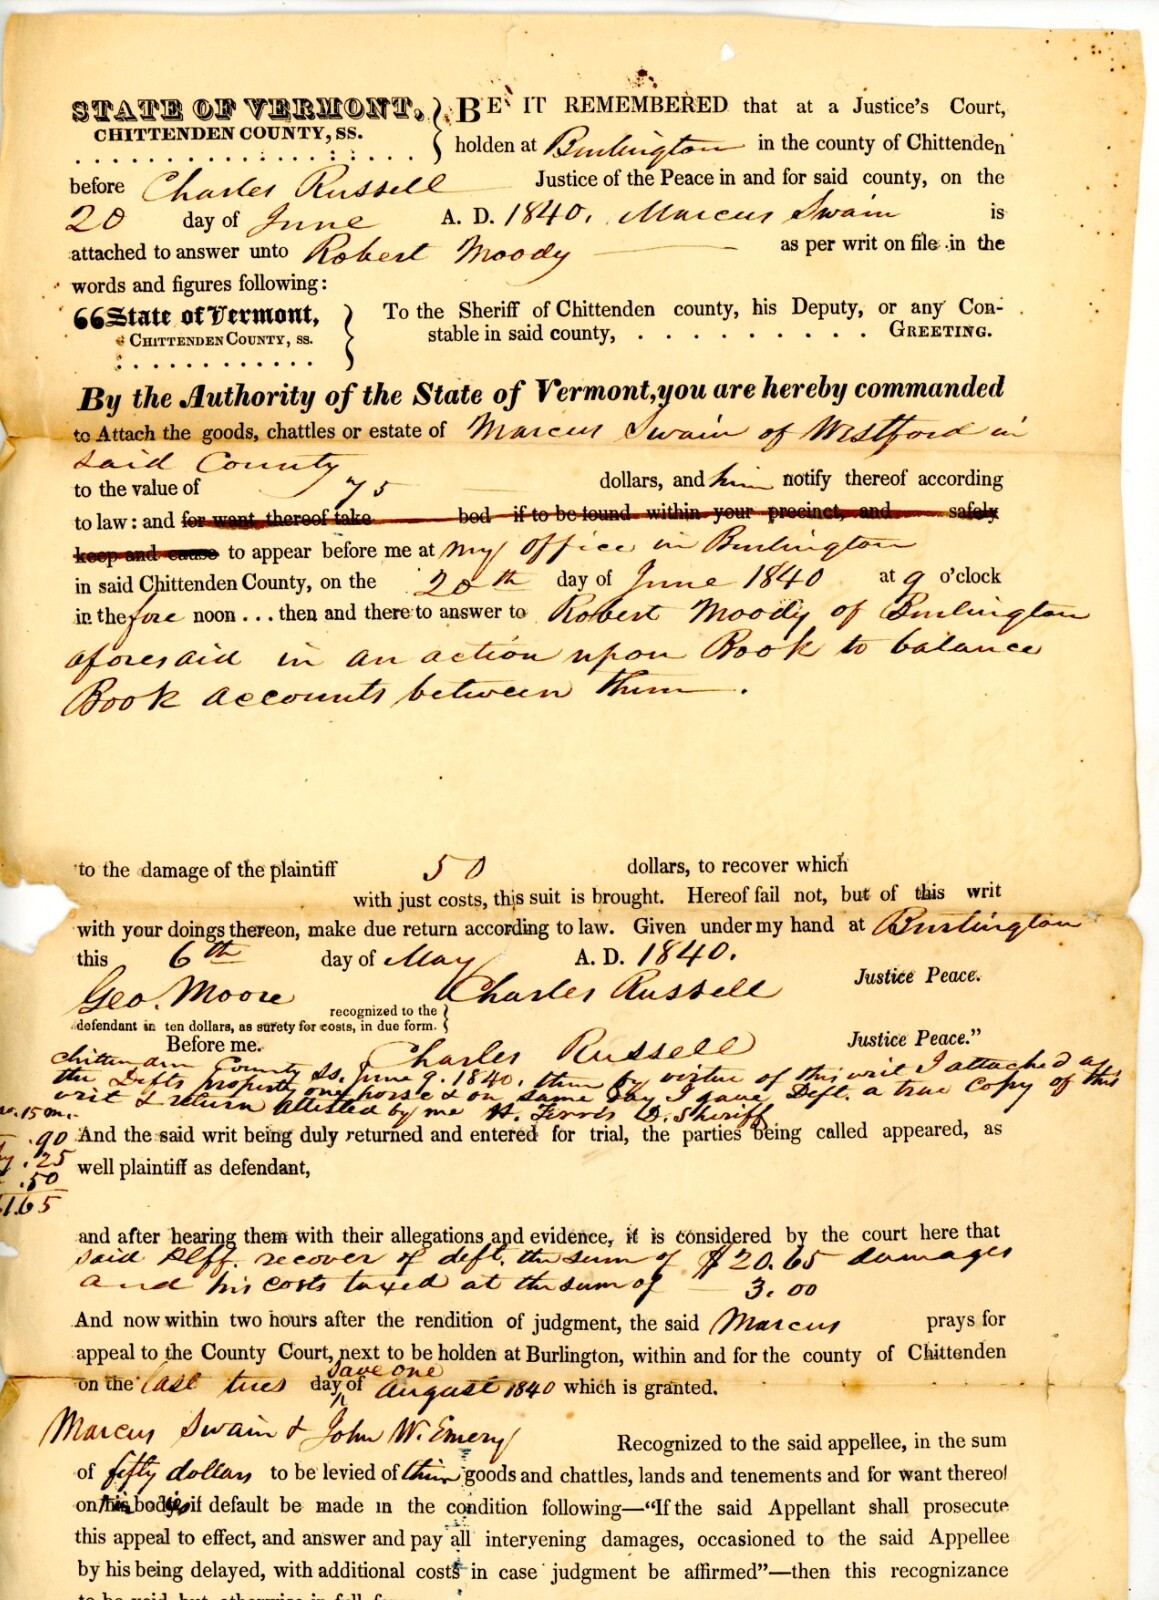 STATE OF VERMONT, } BE IT REMEMBERED that at a Justice's Court,
CHITTENDEN COUNTY, SS. holden at Burlington in the county of Chittenden
before Charles Russell Justice of the Peace in and for said county, on the
20 day of June A. D. 1840. Marcus Swain is
attached to answer unto Robert Moody as per writ on file in the
words and figures following:
"State of Vermont, } To the Sheriff of Chittenden county, his Deputy, or any Con-
CHITTENDEN COUNTY, SS. stable in said county, . . . . . . . . . . GREETING.
By the Authority of the State of Vermont, you are hereby commanded
to Attach the goods, chattles or estate of Marcus Swain of Westford in
said County
to the value of 75 dollars, and him notify thereof according
to law: and for want thereof take bod if to be found within your precinct, and safely
keep and cause to appear before me at my office in Burlington
in said Chittenden County, on the 20th day of June 1840 at 9 o'clock
in the fore noon ... then and there to answer to Robert Moody of Burlington
aforesaid in an action upon Book to balance
Book accounts between them.
to the damage of the plaintiff 50 dollars, to recover which
with just costs, this suit is brought. Hereof fail not, but of this writ
with your doings thereon, make due return according to law. Given under my hand at Burlington
this 6th day of May A. D. 1840.
Geo. Moore Charles Russell Justice Peace.
recognized to the
defendant in ten dollars, as surety for costs, in due form. }
Before me. Charles Russell Justice Peace."
Chittendam County Ss. June 9. 1840. then by virtue of this writ I attached as
the Defts property one horse & on same day I gave Deft. a true Copy of this
writ & return attested by me H. Ferris D. Sheriff
15 m.
.90 And the said writ being duly returned and entered for trial, the parties being called appeared, as
.25 well plaintiff as defendant,
.50
1.65
and after hearing them with their allegations and evidence, it is considered by the court here that
said Plff. recover of deft. the sum of $20.65 damages
and his costs taxed at the sum of 3.00
And now within two hours after the rendition of judgment, the said Marcus prays for
appeal to the County Court, next to be holden at Burlington, within and for the county of Chittenden
save one
on the last tues day of August 1840 which is granted.
Marcus Swain & John W. Emery Recognized to the said appellee, in the sum
of fifty dollars to be levied of their goods and chattles, lands and tenements and for want thereof
on their bodies if default be made in the condition following—"If the said Appellant shall prosecute
this appeal to effect, and answer and pay all intervening damages, occasioned to the said Appellee
by his being delayed, with additional costs in case judgment be affirmed"—then this recognizance